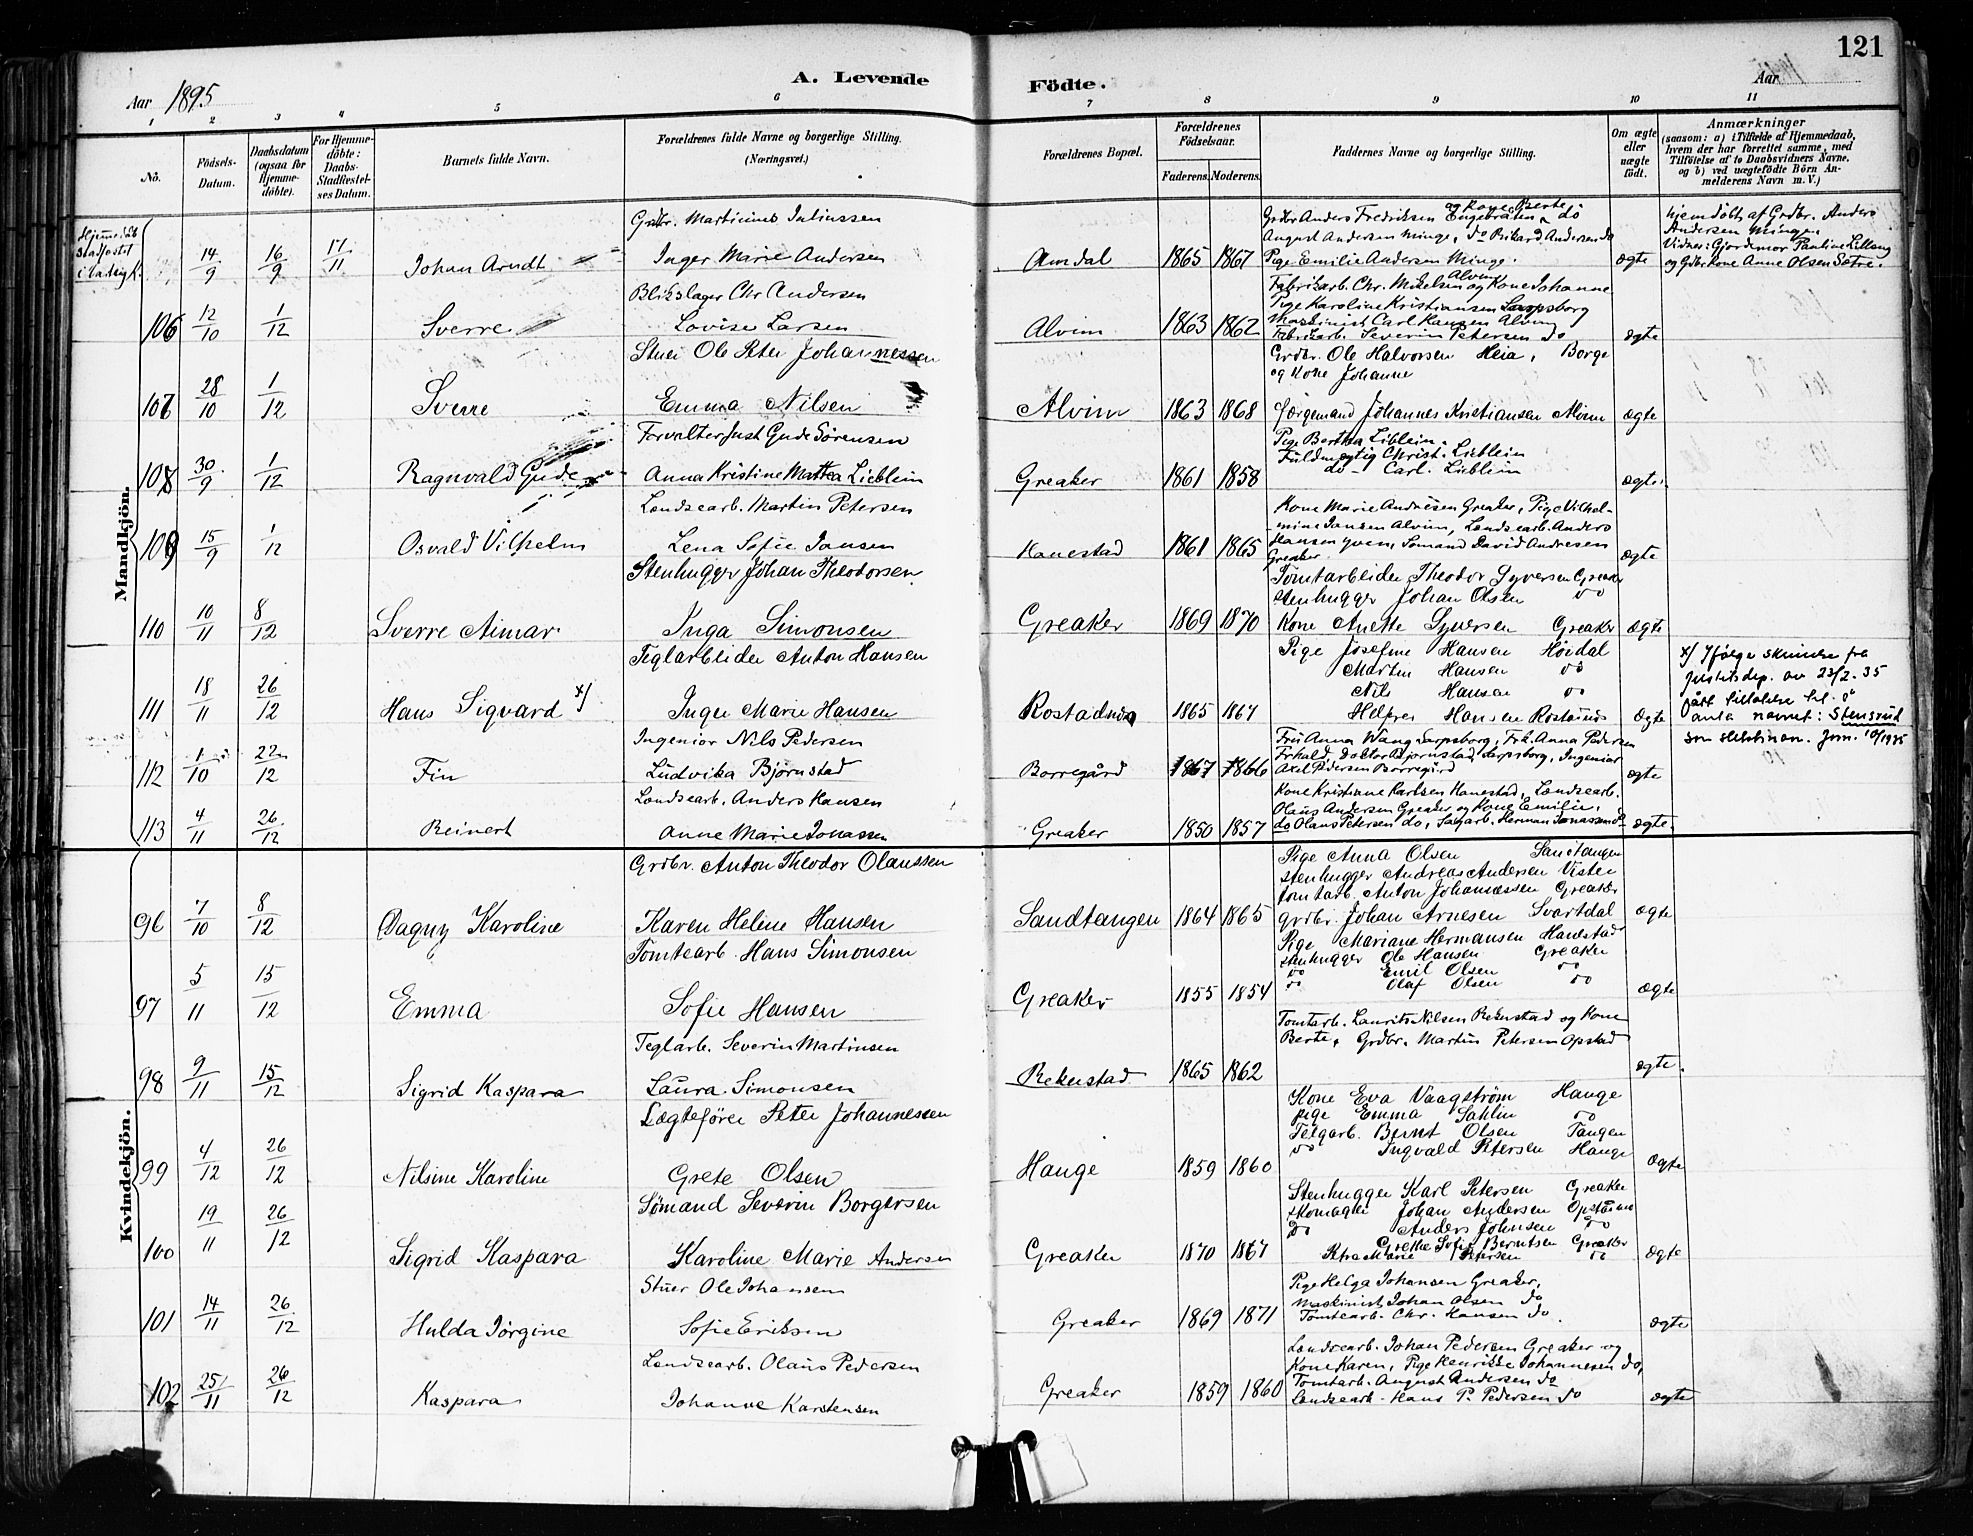 121
Aar 1895
A. Levende
Födte.
Aar
1 2 3 4 5 6 7 8 9 10 11
No.
Födsels-Datum.
Daabsdatum (ogsaa for Hjemmedöbte).
For Hjemmedöbte: Daabs-Stadfæstelses Datum.
Barnets fulde Navn.
Forældrenes fulde Navne og borgerlige Stilling. (Næringsvei.)
Forældrenes Bopæl.
Forældrenes Födselsaar.
Faderens. Moderens.
Faddernes Navne og borgerlige Stilling.
Om ægte eller uægte födt.
Anmærkninger
(saasom: a) i Tilfælde af Hjemmedaab, hvem der har forrettet samme, med Tilföielse af to Daabsvidners Navne, og b) ved uægtefödte Börn Anmelderens Navn m. V.)
Mandkjön.
Hjemmedöb stadfæstet i 14/9 16/9 17/11 Johan Arndt
Grdbr. Martinius Juliussen
Inger Marie Andersen
Amdal 1865 1867
Grdbr Anders Fredriksen Engebråten og Kone Berte do
August Andersen Minge, do Rikard Andersen do
Pige Emilie Andersen Minge.
ægte
hjemdöbt af Grdbr. Anders
Andersen Minge.
Vidner: Gjordemor Pauline Lilleng
og Gdbr Kone Anne Olsen Sætre.
106 12/10 1/12 Sverre
Blikslager Chr Andersen
Lovise Larsen
Alvim 1863 1862
Fabrikarb. Chr. Mikelsen og Kone Johanne Alvim
Pige Karoline Kristiansen Sarpsborg
Maskinist Carl Hansen Alvim
Fabrikarb. Severin Petersen do
ægte
107 28/10 1/12 Sverre
Stuer Ole Peter Johannessen
Emma Nilsen
Alvim 1863 1868
Grdbr. Ole Halvorsen Heia, Borge
og Kone Johanne
Færgemand Johannes Kristiansen Alvim
ægte
108 30/9 1/12 Ragnvald Gude
Forvalter Just Gude Sørensen
Anna Kristine Mattea Lieblein
Greaker 1861 1858
Pige Bertha Lieblein.
Fuldmegtig Christ. Lieblein
do - Carl. Lieblein
ægte.
109 15/9 1/12 Osvald Vilhelm
Landsearb. Martin Petersen
Lena Sofie Jansen
Hanestad 1861 1865
Kone Marie Andresen Greaker, Pige Vilhel-
-mine Jansen Alvim, Landsearb. Anders
Hansen Yven, Sømand David Andresen
Greaker.
ægte
110 10/11 8/12 Sverre Aimar
Stenhugger Johan Theodorsen
Inga Simonsen
Greaker 1869 1870
Tomtarbeider Theodor Syversen Greaker
Stenhugger Johan Olsen do
Kone Anette Syversen Greaker
ægte
111 18/11 26/12 Hans Sigvard x)
Teglarbeider Anton Hansen
Inger Marie Hansen
Rostadnes 1865 1867
Pige Josefine Hansen Höidal
Martin Hansen do
Nils Hansen do
Hansen Rostadnes
ægte
x) Ifølge skrivelse fra
justitsdep. av 23/2-35
gitt tillatelse til å
anta navnet: Stensrud
som slektsnavn. Jnr. 10/1935
112 1/10 22/12 Fin
Ingeniør Nils Pedersen
Ludvika Bjørnstad
Borregård 1867 1866
Fru Anna Wang Sarpsborg, Frk. Anna Pedersen
Doktor Bjørnstad, Sarpsborg, Ingeniør
Axel Pedersen Borregård
ægte
113 4/11 26/12 Reinert
Landsearb. Anders Hansen
Anne Marie Jonassen
Greaker 1850 1857
Kone Kristiane Karlsen Hanestad, Landsearb.
Olaus Andersen Greaker og Kone Emilie,
do Olaus Petersen do, Sagarb. Herman Jonassen do
ægte.
Kvindekjön.
96 7/10 8/12 Dagny Karoline
Grdbr. Anton Theodor Olaussen
Karen Heline Hansen
Sandtangen 1864 1865
Pige Anna Olsen Sandtangen
Stenhugger Andreas Andersen Vister
Tomtarb. Anton Johannessen Greaker
Grdbr. Johan Arnesen Svartdal
ægte
97 5/11 15/12 Emma
Tomtearb. Hans Simonsen
Sofie Hansen
Greaker 1855 1854
Pige Mariane Hermansen Hanestad
Stenhugger Ole Hansen Greaker
do Emil Olsen do
do Olaf Olsen do
ægte
98 9/11 15/12 Sigrid Kaspara
Teglarb. Severin Martinsen
Laura Simonsen
Rekustad 1865 1862
Tomtarb. Laurits Nilsen Rekustad og Kone
Berte, Grdbr. Martin Petersen Opstad
ægte.
99 4/12 26/12 Nilsine Karoline
Lægtefører Peter Johannessen
Grete Olsen
Hauge 1859 1860
Kone Eva Vaagstrøm Hauge
pige Emma Sahlin do
Telgarb. Bernt Olsen Tangen
do Ingvald Petersen Hauge
ægte
100 19/11 26/12 Sigrid Kaspara
Sømand Severin Borgersen
Karoline Marie Andersen
Greaker 1870 1867
Stenhugger Karl Petersen Greaker
Skomager Johan Andersen Opstad
do Anders Johnsen do
Grethe Sofie Berntsen Greaker
Marie Petersen do
ægte
101 14/11 26/12 Hulda Jörgine
Stuer Ole Johansen
Sofie Eriksen
Greaker 1869 1871
Pige Helga Johansen Greaker,
Maskinist Johan Olsen do
Tomtearb. Chr. Hansen do.
ægte
102 25/11 26/12 Kaspara
Landsearb. Olaus Pedersen
Johanne Karstensen
Greaker 1859 1860
Landsearb. Johan Pedersen Greaker og
Kone Karen, Pige Henrikke Johannesen do,
Tomtarb. August Andersen do
Landsearb. Hans P. Pedersen do
ægte